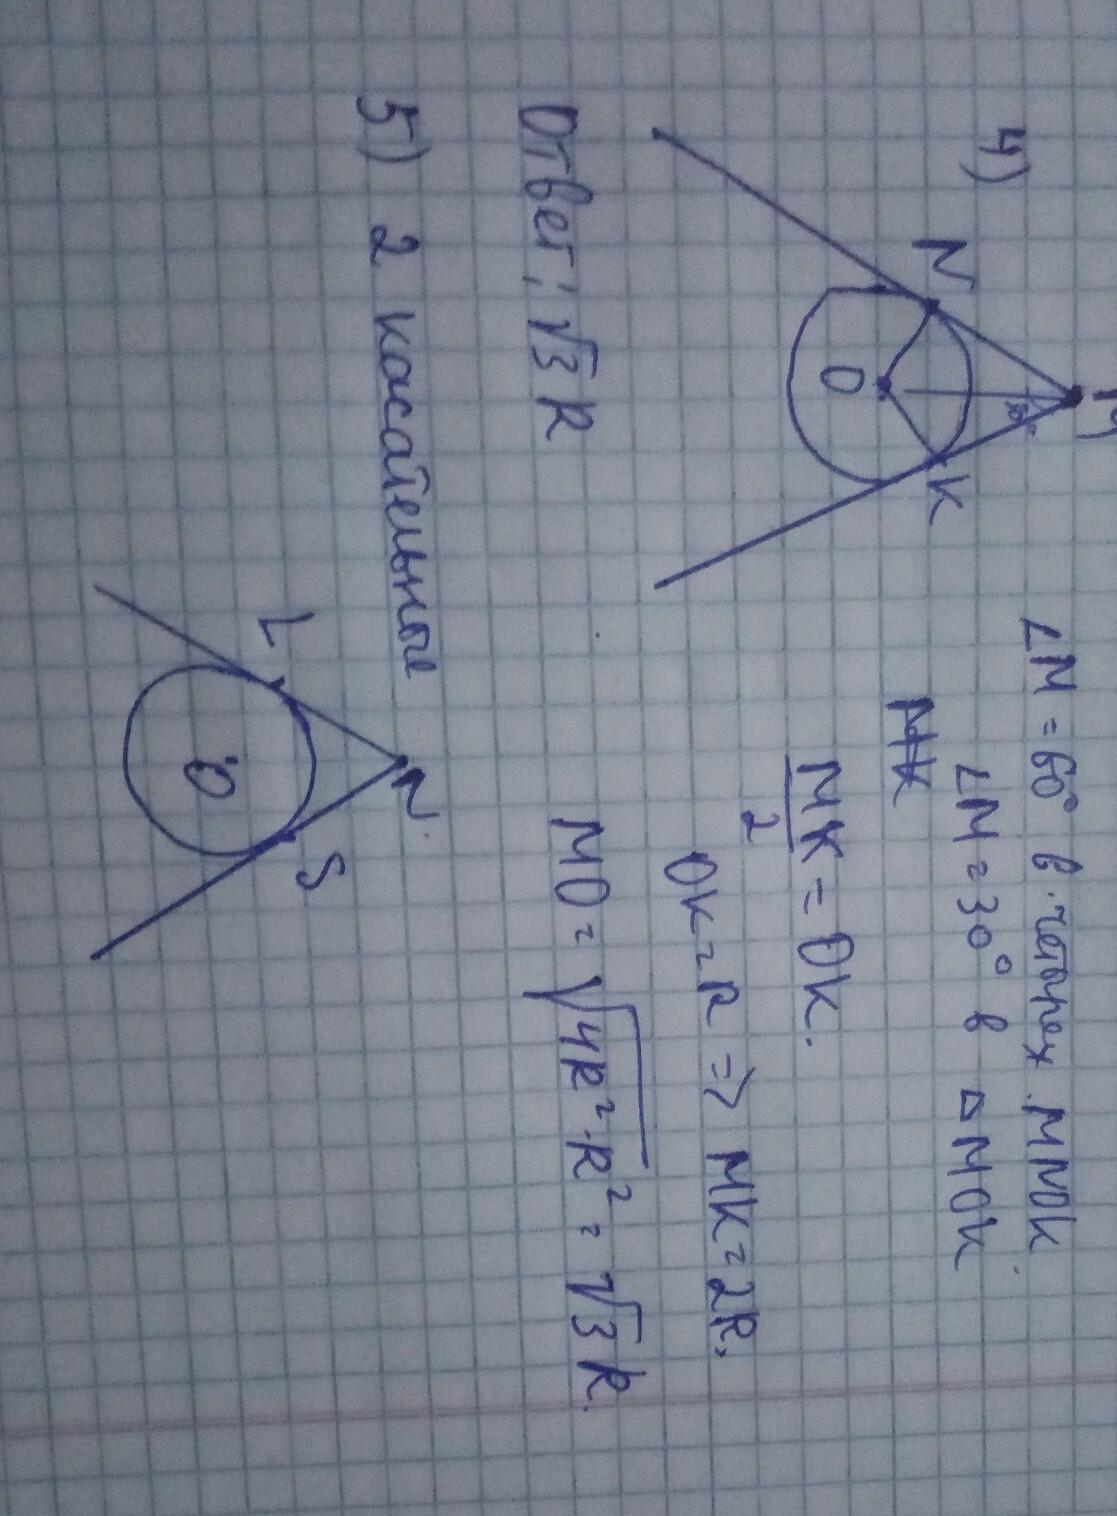 4)
M
N
K
O
30°
∠M = 60° в четырех. MNOK
∠M = 30° в △MOK
MK/2 = OK.
OK = R => MK = 2R,
MO = √4R²-R² = √3 R.
Ответ: √3 R
5) 2 касательные
N
L
S
O